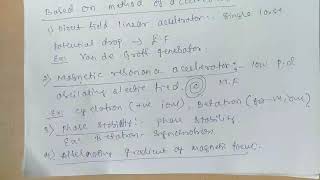 Based on method of a
1) Direct field linear accelerator:- Single large
potential drop → E.F
Ex: Van de Graff generator.
2) Magnetic resonance accelerator:- low p.d
oscilating electric field. M.F
Ex: cyclotron (+ve ions), Betatron (for -ve ions)
3) Phase stability:- phase stability
Ex: Betatron- Synchrotron
4) Alternating gradient of magnetic focus:-